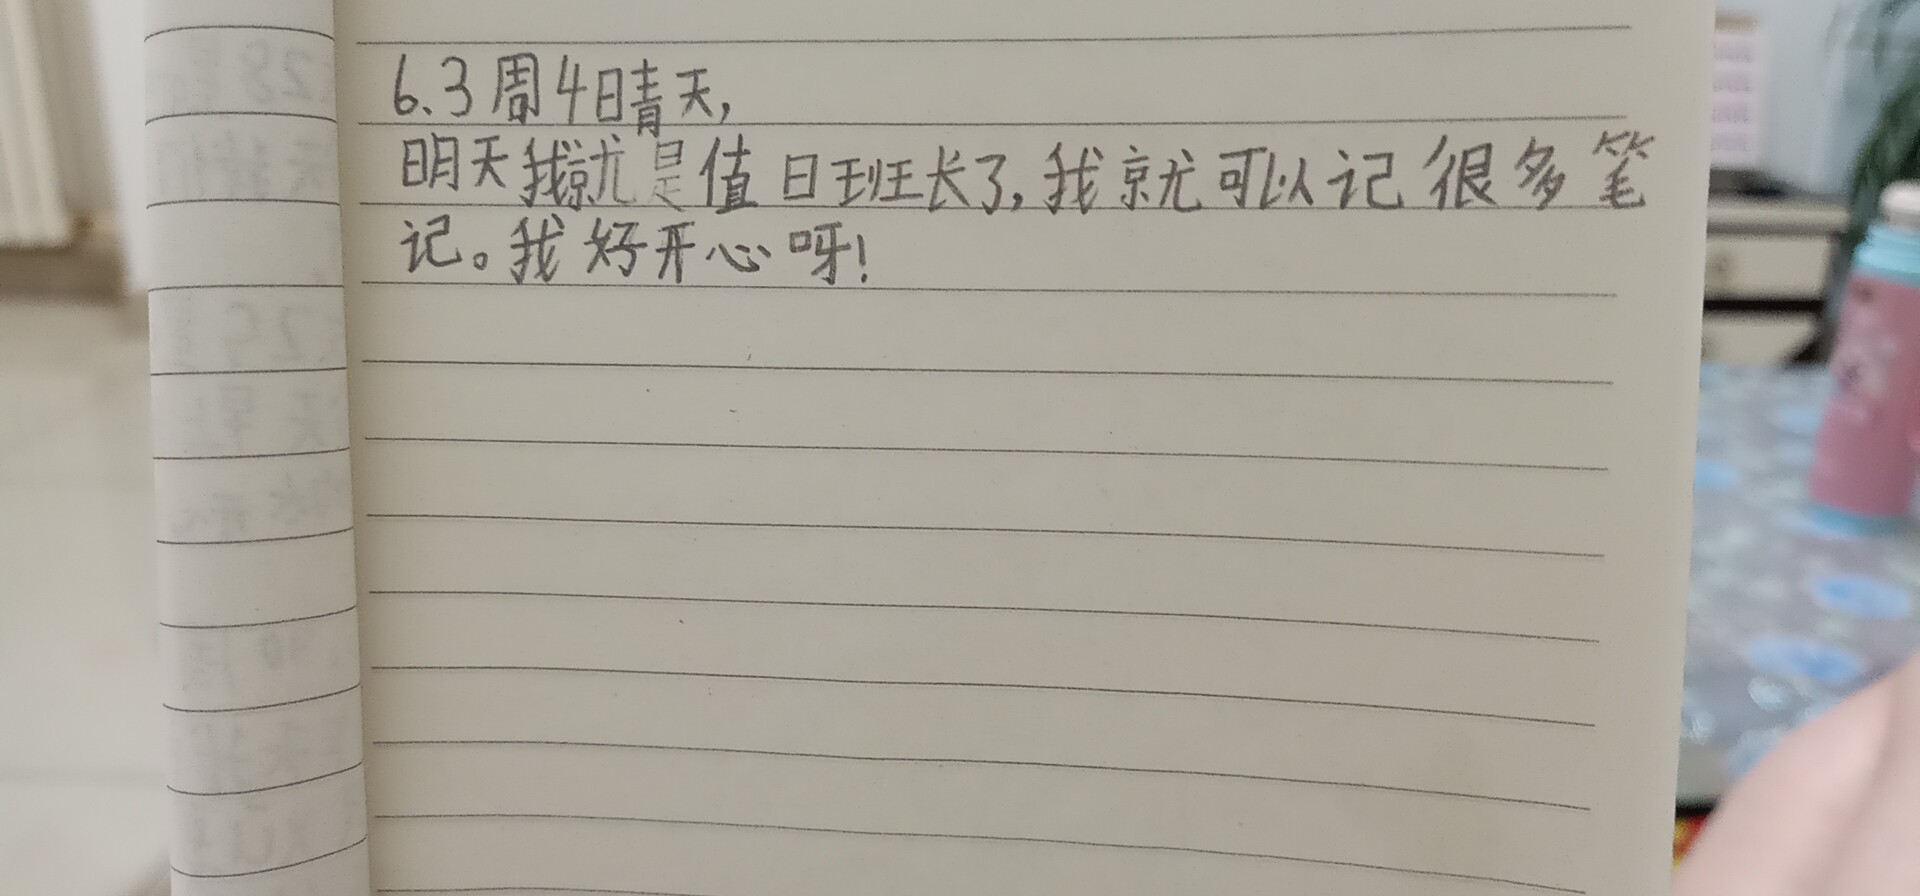 6.3周4日晴天,
明天我就是值日班长了,我就可以记很多笔
记。我好开心呀!